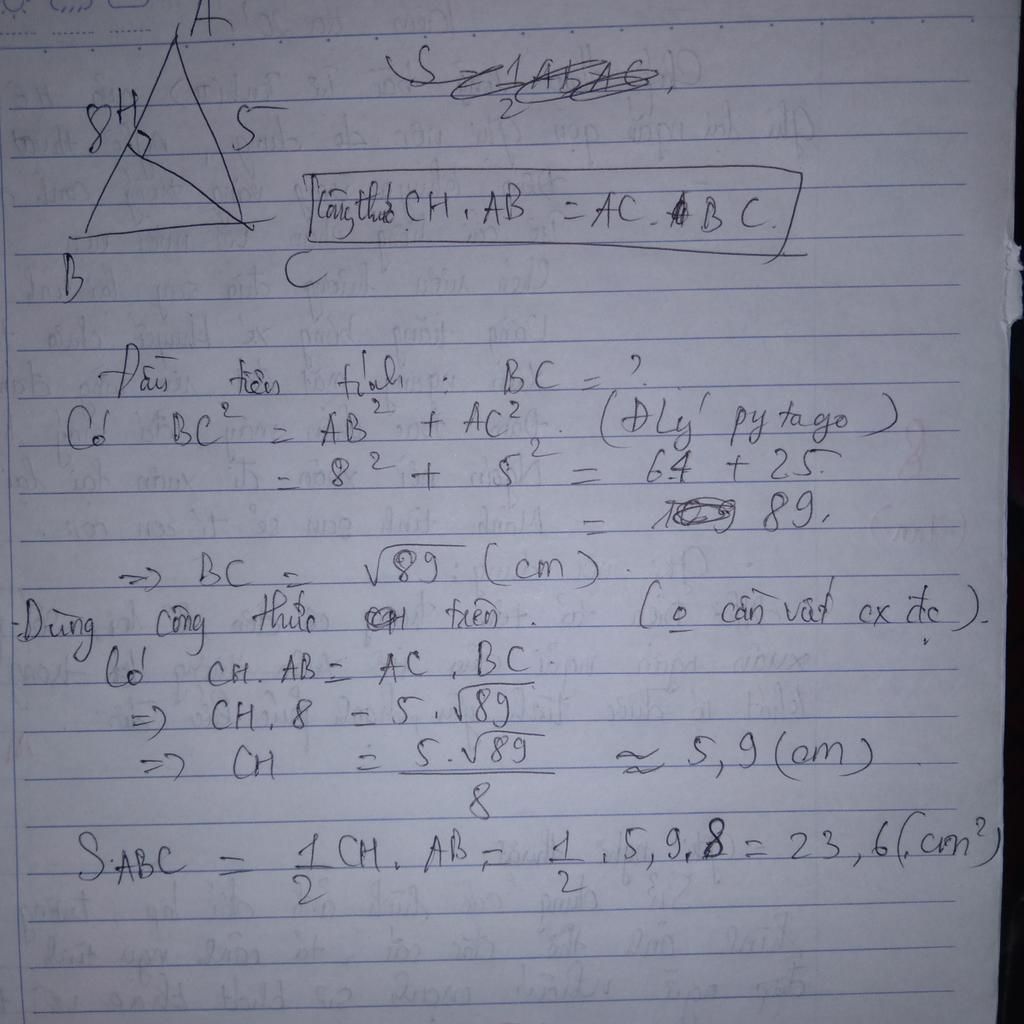 A
S = 1/2 AB.AC
8 H 5
Công thức CH. AB = AC. BC.
B C
Đầu tiên tính: BC = ?
Có BC² = AB² + AC². (Đ Lý pytago)
= 8² + 5² = 64 + 25.
= 89.
=> BC = √89 (cm).
- Dùng công thức trên. (o cần viết cx đc).
Có CH. AB = AC. BC
=> CH. 8 = 5.√89
=> CH = 5.√89/8 ≈ 5,9 (cm)
S.ABC = 1/2 CH. AB = 1/2 . 5,9. 8 = 23,6 (cm²)